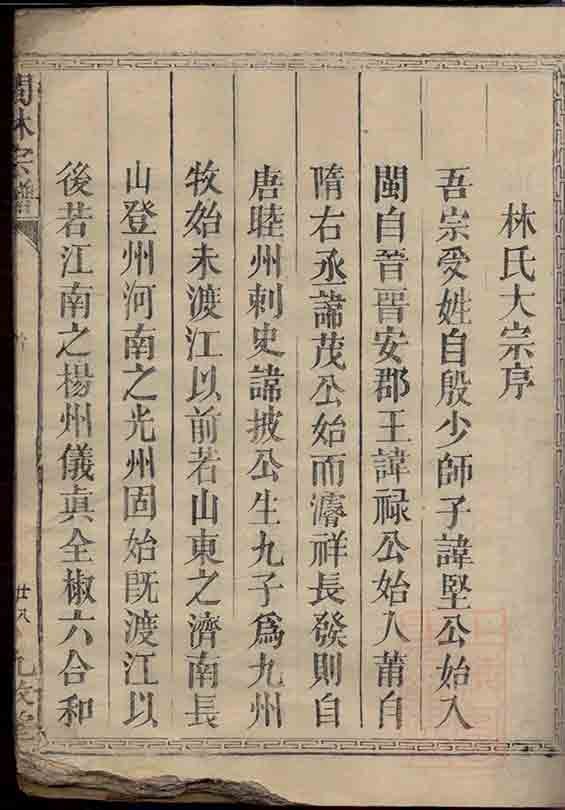 林氏大宗序
吾宗受姓自殷少師子諱堅公始入
閩自晉晉安郡王諱祿公始入莆自
隋右丞諱茂公始而濬祥長發則自
唐睦州刺史諱披公生九子爲九州
牧始未渡江以前若山東之濟南長
山登州河南之光州固始旣渡江以
後若江南之楊州儀真全椒六合和
林宗譜
廿八